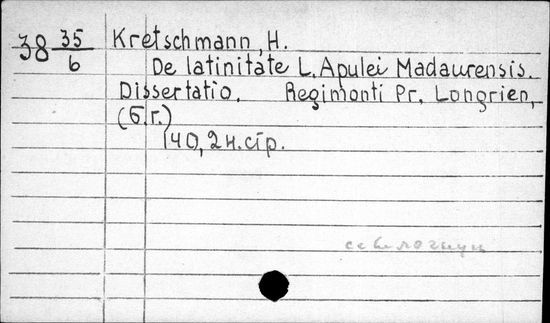 38 35/6 Kretschmann, H.
De latinitate L. Apulei Madaurensis.
Dissertatio. Regimonti Pr, Longrien,
(б.г.)
140, 2 н.стр.